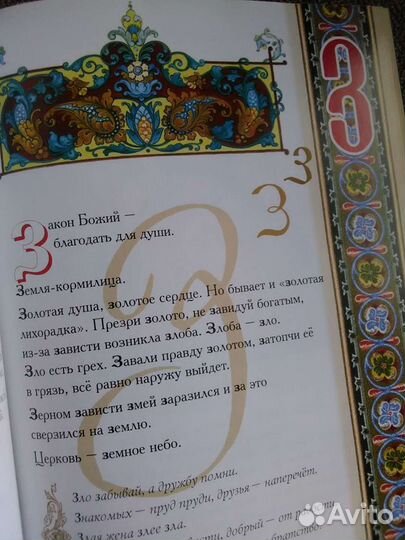 З
З з
З
Закон Божий —
благодать для души.
Земля-кормилица.
Золотая душа, золотое сердце. Но бывает и «золотая
лихорадка». Презри золото, не завидуй богатым,
из-за зависти возникла злоба. Злоба — зло.
Зло есть грех. Завали правду золотом, затопчи её
в грязь, всё равно наружу выйдет.
Зерном зависти змей заразился и за это
сверзился на землю.
Церковь — земное небо.
Зло забывай, а дружбу помни.
Знакомых — пруд пруди, друзья — наперечёт.
Злая жена злее зла.
добрый — от
Avito